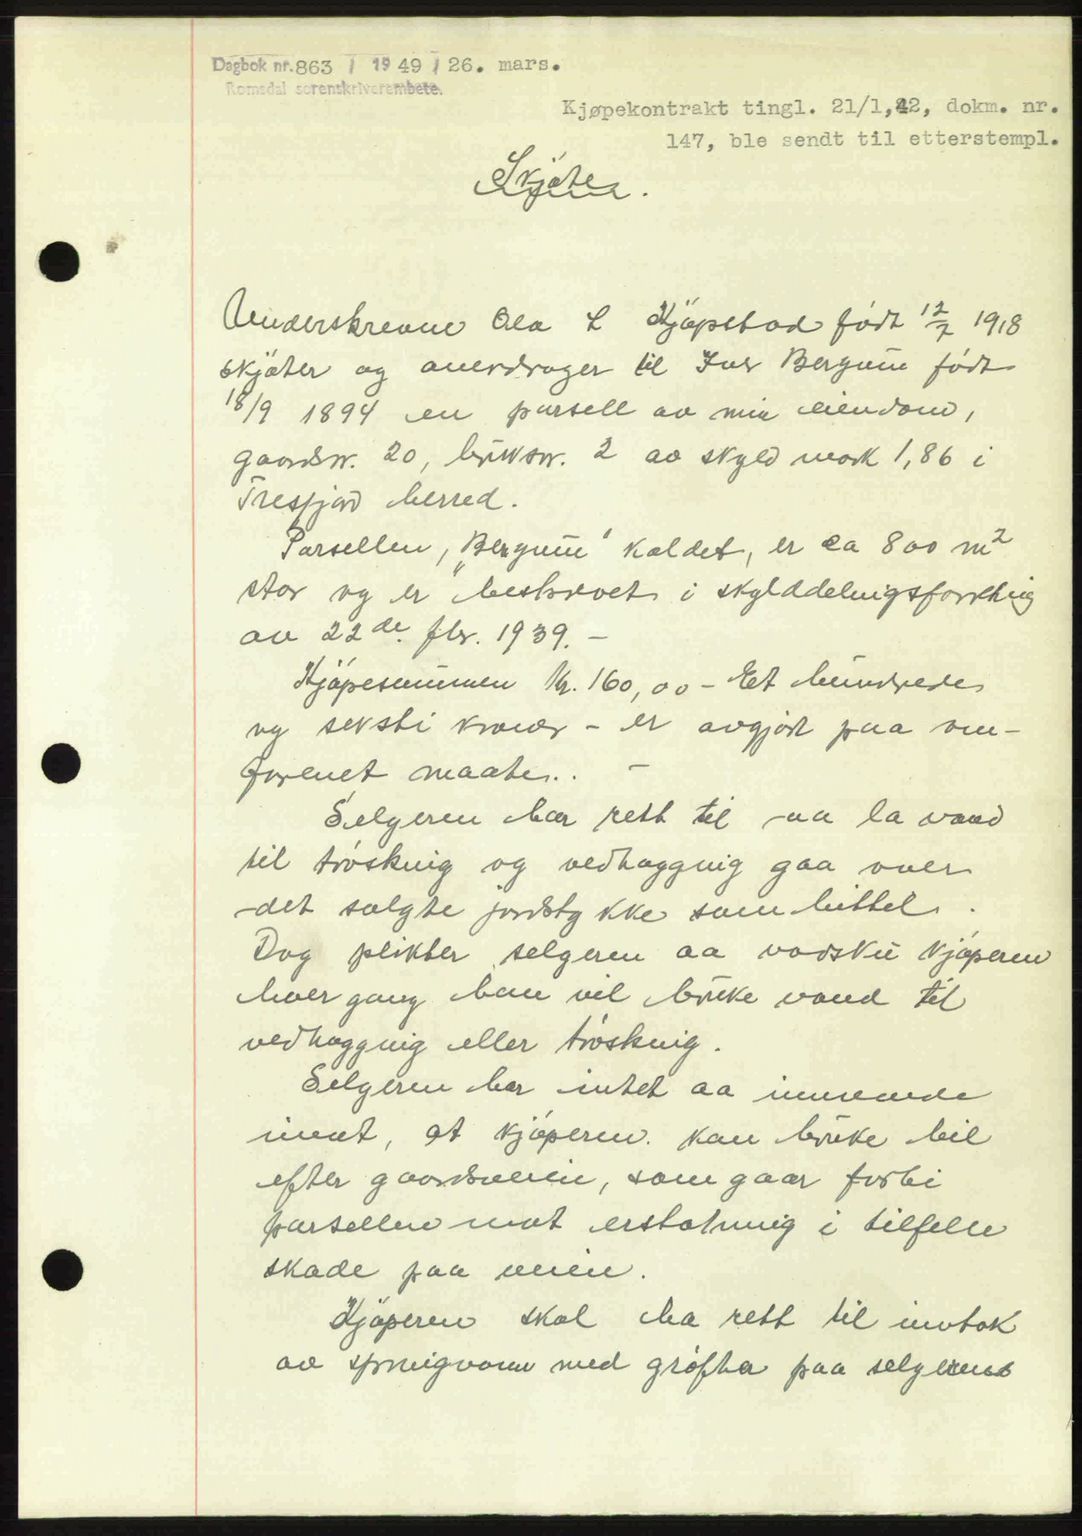 Dagbok nr. 863 / 19 49 / 26. mars.
Romsdal sorenskriverembete.
Kjøpekontrakt tingl. 21/1,42, dokm. nr.
147, ble sendt til etterstempl.
Skjöte.
Underskrevne Ola L Kjöpstad födt 12/7 1918
skjöter og overdrager til Ivar Bergum födt
18/9 1894 en parsell av min eiendom,
gaardsnr. 20, bruksnr. 2 av skyld mark 1,86 i
Tresfjord herred.
Parsellen, "Bergum" kaldet, er ca 800 m2
stor og er beskrevet i skylddelingsforretning
av 22de fbr. 1939. -
Kjöpesummen kr. 160,00 - Et hundrede
og seksti kroner - er avgjort paa om-
forenet maate. -
Selgeren har rett til aa la vand
til tröskning og vedhogging gaa over
det solgte jordstykke som hittel.
Dog plikter selgeren aa varsku kjöperen
hver gang han vil bruke vand til
vedhogging eller tröskning.
Selgeren har intet aa innvende
imot, at kjöperen kan bruke bil
efter gaardsveien, som gaar forbi
parsellen mot erstatning i tilfelle
skade paa veien.
Kjöperen skal ha rett til inntak
av springvann med gröfter paa selgerens